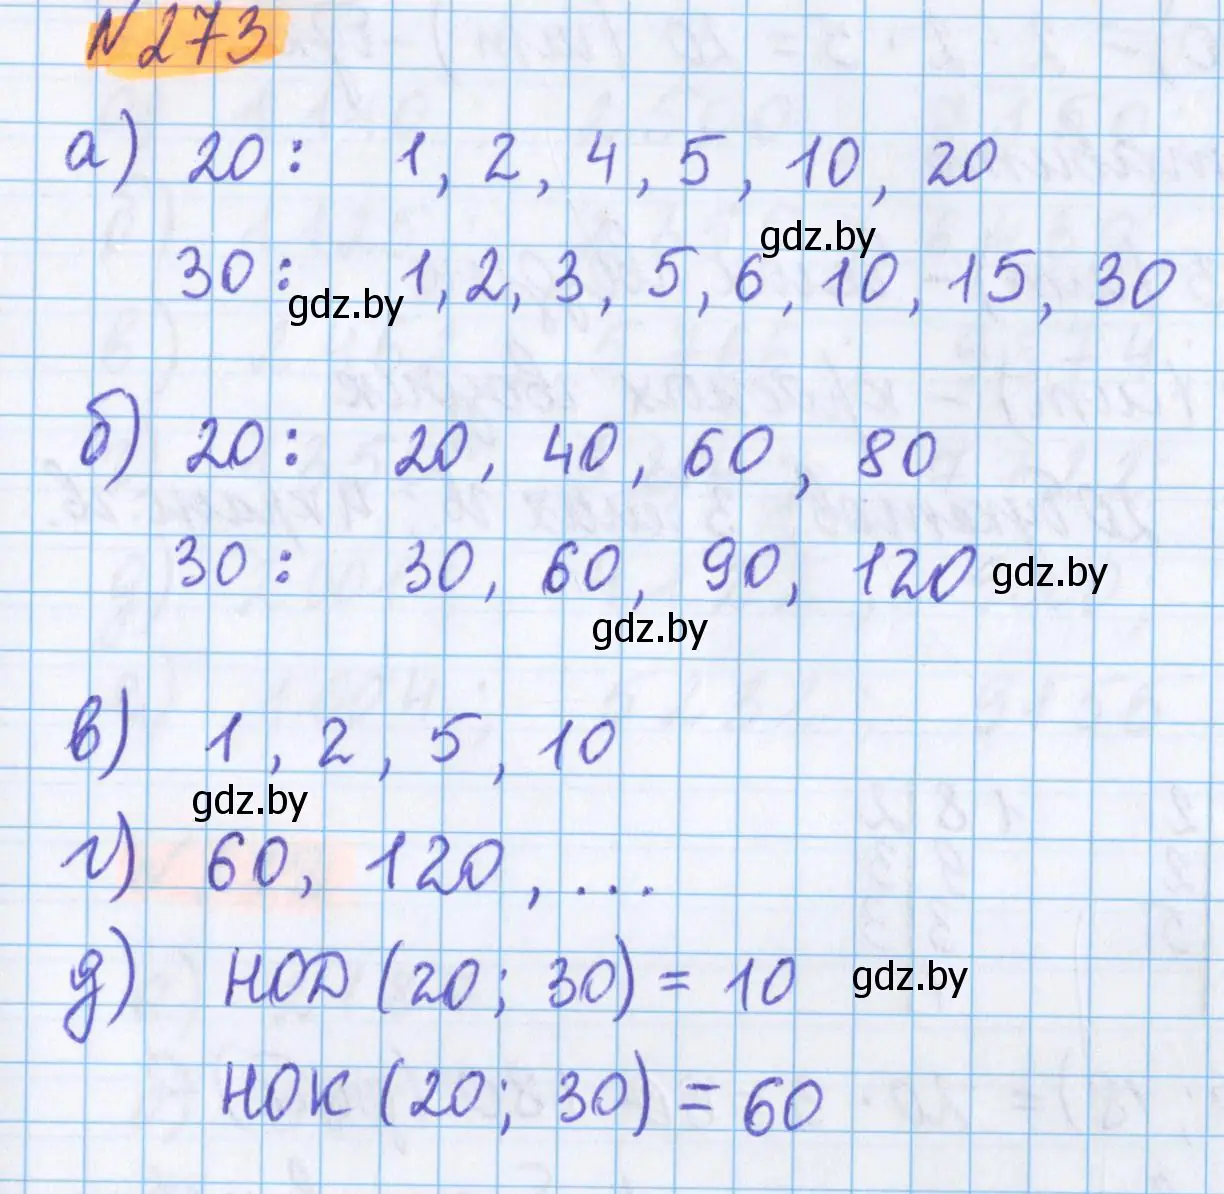 N 273
а) 20: 1, 2, 4, 5, 10, 20
gdz.by
30: 1, 2, 3, 5, 6, 10, 15, 30
gdz.by
б) 20: 20, 40, 60, 80
30: 30, 60, 90, 120 gdz.by
gdz.by
в) 1, 2, 5, 10
gdz.by
г) 60, 120, ...
д) НОД (20; 30) = 10 gdz.by
НОК (20; 30) = 60